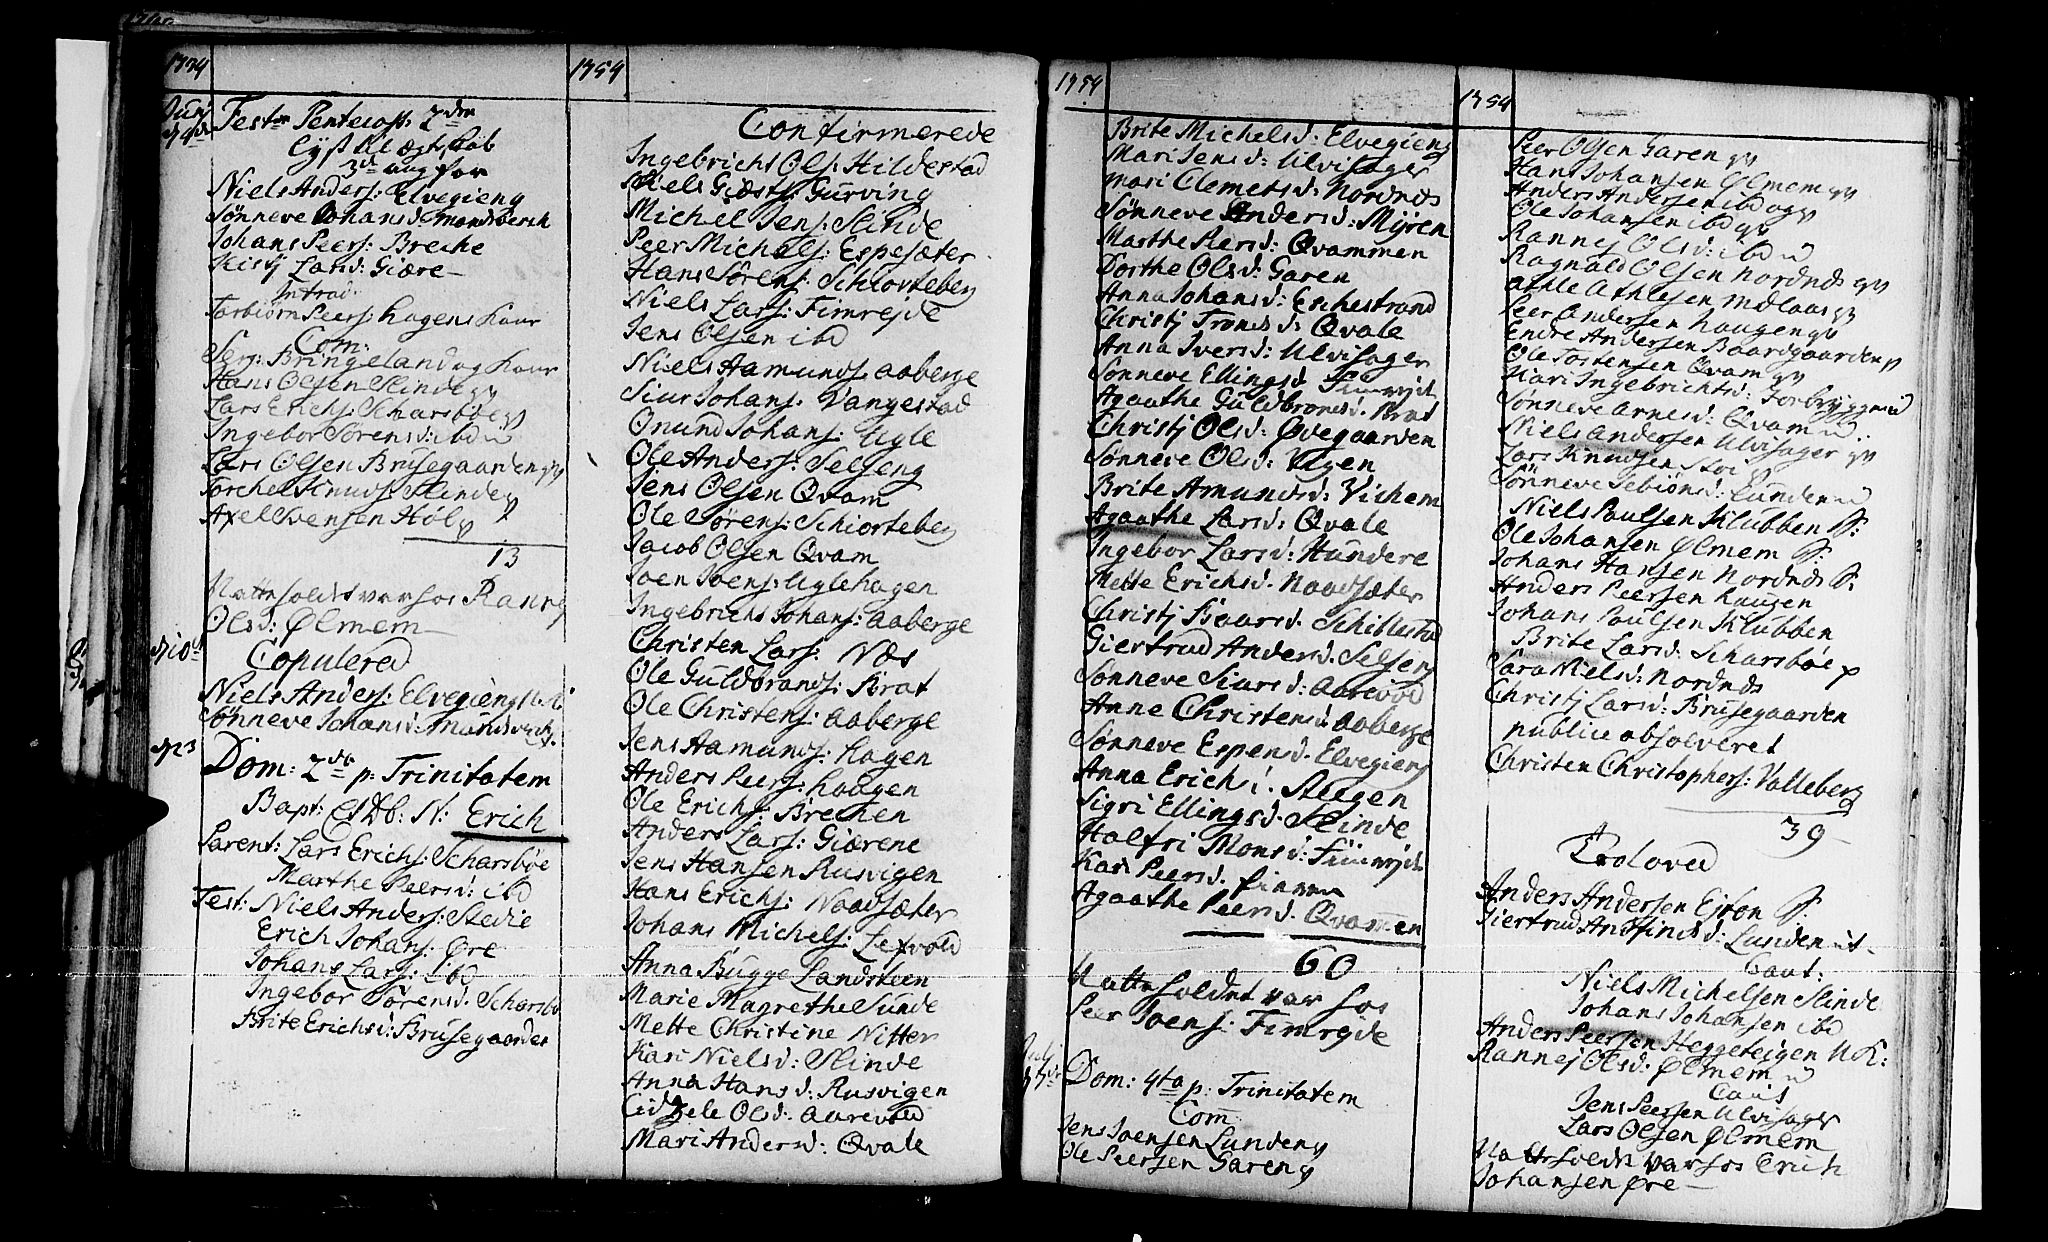 1754
Juni
d 4de
Festo Pentecost: 2den
Lyst til Ægteskab
3de gang for
Niels Anders: Elvegieng
Sønneve Johansd: Mundsberch
Johans Peers: Breche
Kistj Larsd: Giære
Introd.
Torbiørn Peers: Hagens Kaar
Com:
Serg: Bringeland og Kaar
Hans Olsen Slinde
Lars Erichs: Scharsbøe
Ingebor Sørensd: ibd
Lars Olsen Brusegaarden
Torchel Knuds: Slinde
Axel Svensen Høl
13
Natte holdet var hos Rannej
Olsd: Ølmem
d 10de
Copulered
Niels Anders: Elvegieng
Sønneve Johansd: Mundsberch
d 23
Dom: 2da p: Trinitatem
Bapt: N: Erich
Parent: Lars Erichs: Scharsbøe
Marthe Peersd: ibd
Test: Niels Anders: Stedie
Erich Johans: Øre
Johans Lars: ibd
Ingebor Sørensd. Scharsbø
Brite Erichsd: Brusegaarden
1754
Confirmerede
Ingebricht Ols: Hildestad
Niels Giæsts: Gurving
Michel Jens: Slinde
Peer Michels: Espesæter
Hans Sørens: Schiorteberg
Niels Lars: Fimrejde
Jens Olsen ibd
Niels Aamunds: Aaberge
Siur Johans: Vangestad
Onund Johans: Ugle
Ole Anders: Selseng
Jens Olsen Qvam
Ole Sørens: Schiorteberg
Jacob Olsen Qvam
Joen Joens: Uglehagen
Ingebricht Johans: Aaberge
Christen Lars: Næs
Ole Guldbrands: Krat
Ole Christens: Aaberge
Jens Aamunds: Hagen
Anders Peers: Haugen
Ole Erichs: Brechen
Anders Lars: Giærene
Jens Hansen Rusvigen
Hans Erichs: Naadsæter
Johans Michels: Lefvold
Anna Bugge Landsteen
Marie Magrethe Sunde
Mette Christine Nitter
Kari Nielsd: Slinde
Anna Hansd: Rusvigen
Lidzele Olsd: Aarevold
Mari Andersd: Qvale
1754
Brite Michelsd: Elvegieng
Mari Jensd: Ulvisager
Mari Clemetsd: Nordnds
Sønneve Andersd: Mÿren
Marthe Peersd: Qvammen
Dorthe Olsd: Garen
Anna Johansd: Eschestrand
Christj Tronds d: Qvale
Anna Iversd: Ulvisager
Sønneve Ellingsd Fimrejde
Agaathe Guldbrandsd. Krat
Christj Olsd: Øvegaarden
Sønneve Olsd: Vigen
Brite Amundsd: Vichem
Agaathe Larsd: Qvale
Ingebor Larsd: Hundere
Mette Erichsd. Naadsæter
Christj Baarsd. Schillestad
Giertrud Andersd. Selseng
Sønneve Siursd: Aarevold
Anne Christensd: Aaberge
Sønneve Espensd. Elvegieng
Anna Erichsd. Steegen
Sigri Ellingsd. Slinde
Halfri Monsd: Fimrejde
Kari Peersd. Finnen
Agaathe Peersd. Qvamen
60
Natteholdet var hos
Peer Joens: Fimrejde
Julj
d 7de
Dom: 4ta p: Trinitatem
Com
Jens Joensen Lunden
Ole Peersen Garen
1754
Peer Olsen Garen
Hans Johansen Ølmem
Anders Andersen ibd
Ole Johansen ibd
Rannej Olsd: ibd
Ragnald Olsen Nordnds
Athle Athlesen Mdlaas
Peer Andersen Haugen
Endre Andersen Baardgaarden
Ole Tostensen Qvam
Kari Ingebrichtsd: Torbryggen
Sønneve Arnesd: Qvam
Niels Andersen Ulvisager
Lars Knudsen Stoe
Sønneve Sebiørnsd: Lunden
Niels Paulsen Klubben S:
Ole Johansen Ølmem S:
Johans Hansen Nordnds S:
Anders Peersen Haugen
Johans Paulsen Klubben
Brite Larsd: Scharsbøe
Sara Nielsd: Nordnds
Christj Larsd: Brusegaarden
publice absolveret
Christen Christophers: Valleberg
39
Trolovd
Anders Andersen Eiron S:
Giertrud Andfinsd: Lunden
Caut:
Niels Michelsen Slinde
Johans Johansen ibd
Anders Peersen Heggeteigen U K:
Rannej Olsd: Ølmem
Caut
Jens Peersen Ulvisager
Lars Olsen Ølmem
Natteholdet var hos Erich
Johansen Øre